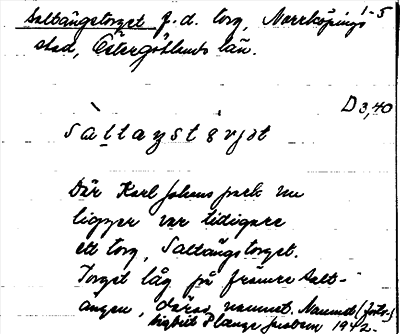 Saltängstorget f.d. torg, Norrköpings 1-5
stad, Östergötlands län.
D 3,40
sàltaŋstérjət
Där Karl Johans park nu
ligger var tidigare
ett torg, Saltängstorget.
Torget låg på främre Salt-
ängen, därav namnet. Namnet (forts.)
1942.